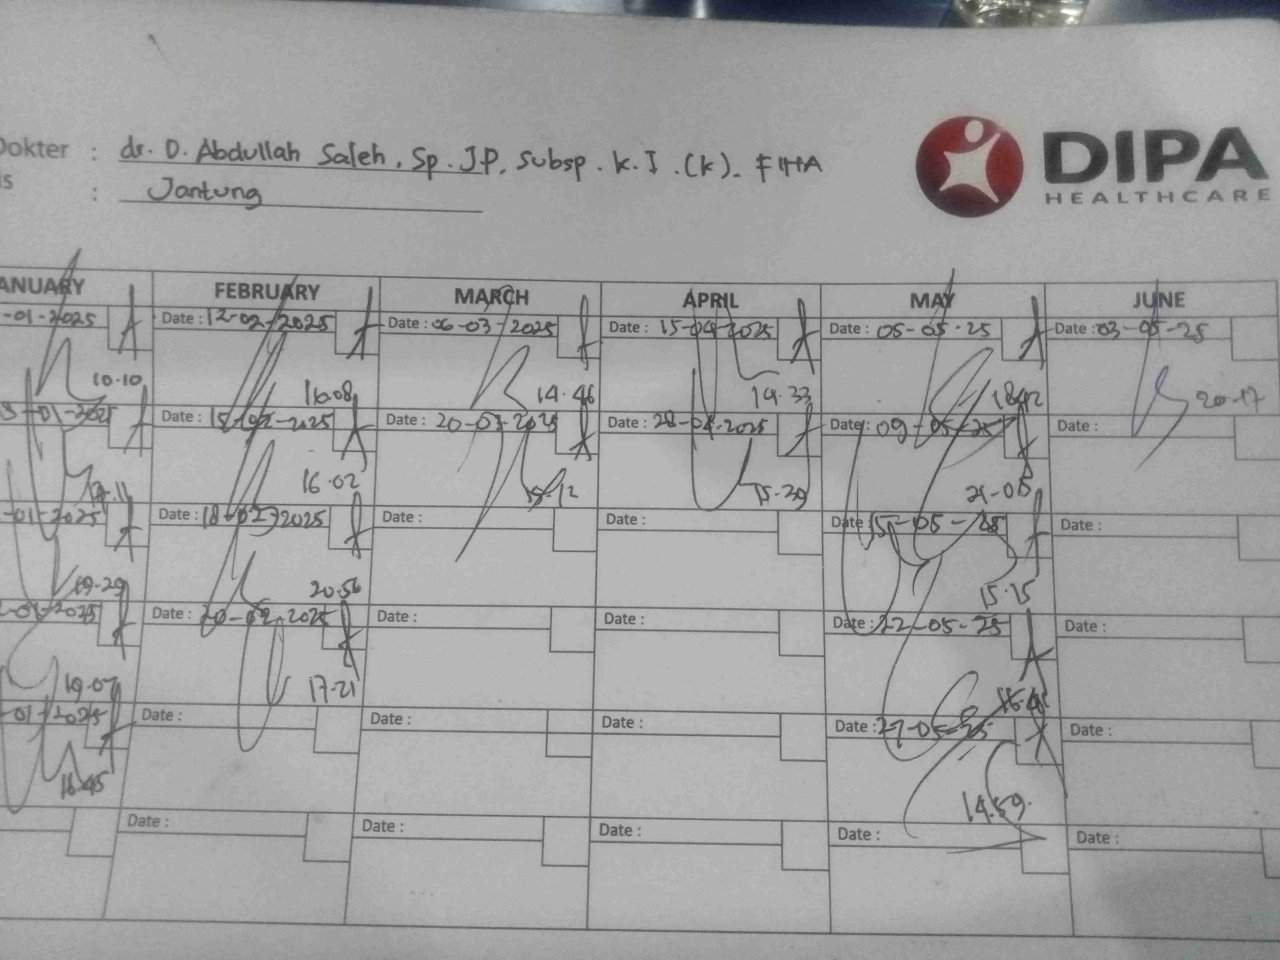 Dokter : dr. D. Abdullah Saleh. Sp. JP. Subsp. K.I. (K). FIHA
is : Jantung
DIPA
HEALTHCARE
ANUARY FEBRUARY MARCH APRIL MAY JUNE
-01-2025 Date : 12-02-2025 Date : 06-03-2025 Date : 15-04-2025 Date : 05-05-25 Date : 03-05-25
10.10 16.08 14.46 14.33 20.17
-01-2025 Date : 15-02-2025 Date : 20-03-2025 Date : 28-04-2025 Date : 09-05-25 Date :
16.02 15.12 15.29 21.08
-01-2025 Date : 18-02-2025 Date : Date : Date : 15-05-25 Date :
19.29 20.56 15.15
-01-2025 Date : 20-02-2025 Date : Date : Date : 22-05-25 Date :
19.07 17.21
-01-2025 Date : Date : Date : Date : 27-05-25 Date :
16.45 14.59
Date : Date : Date : Date : Date :